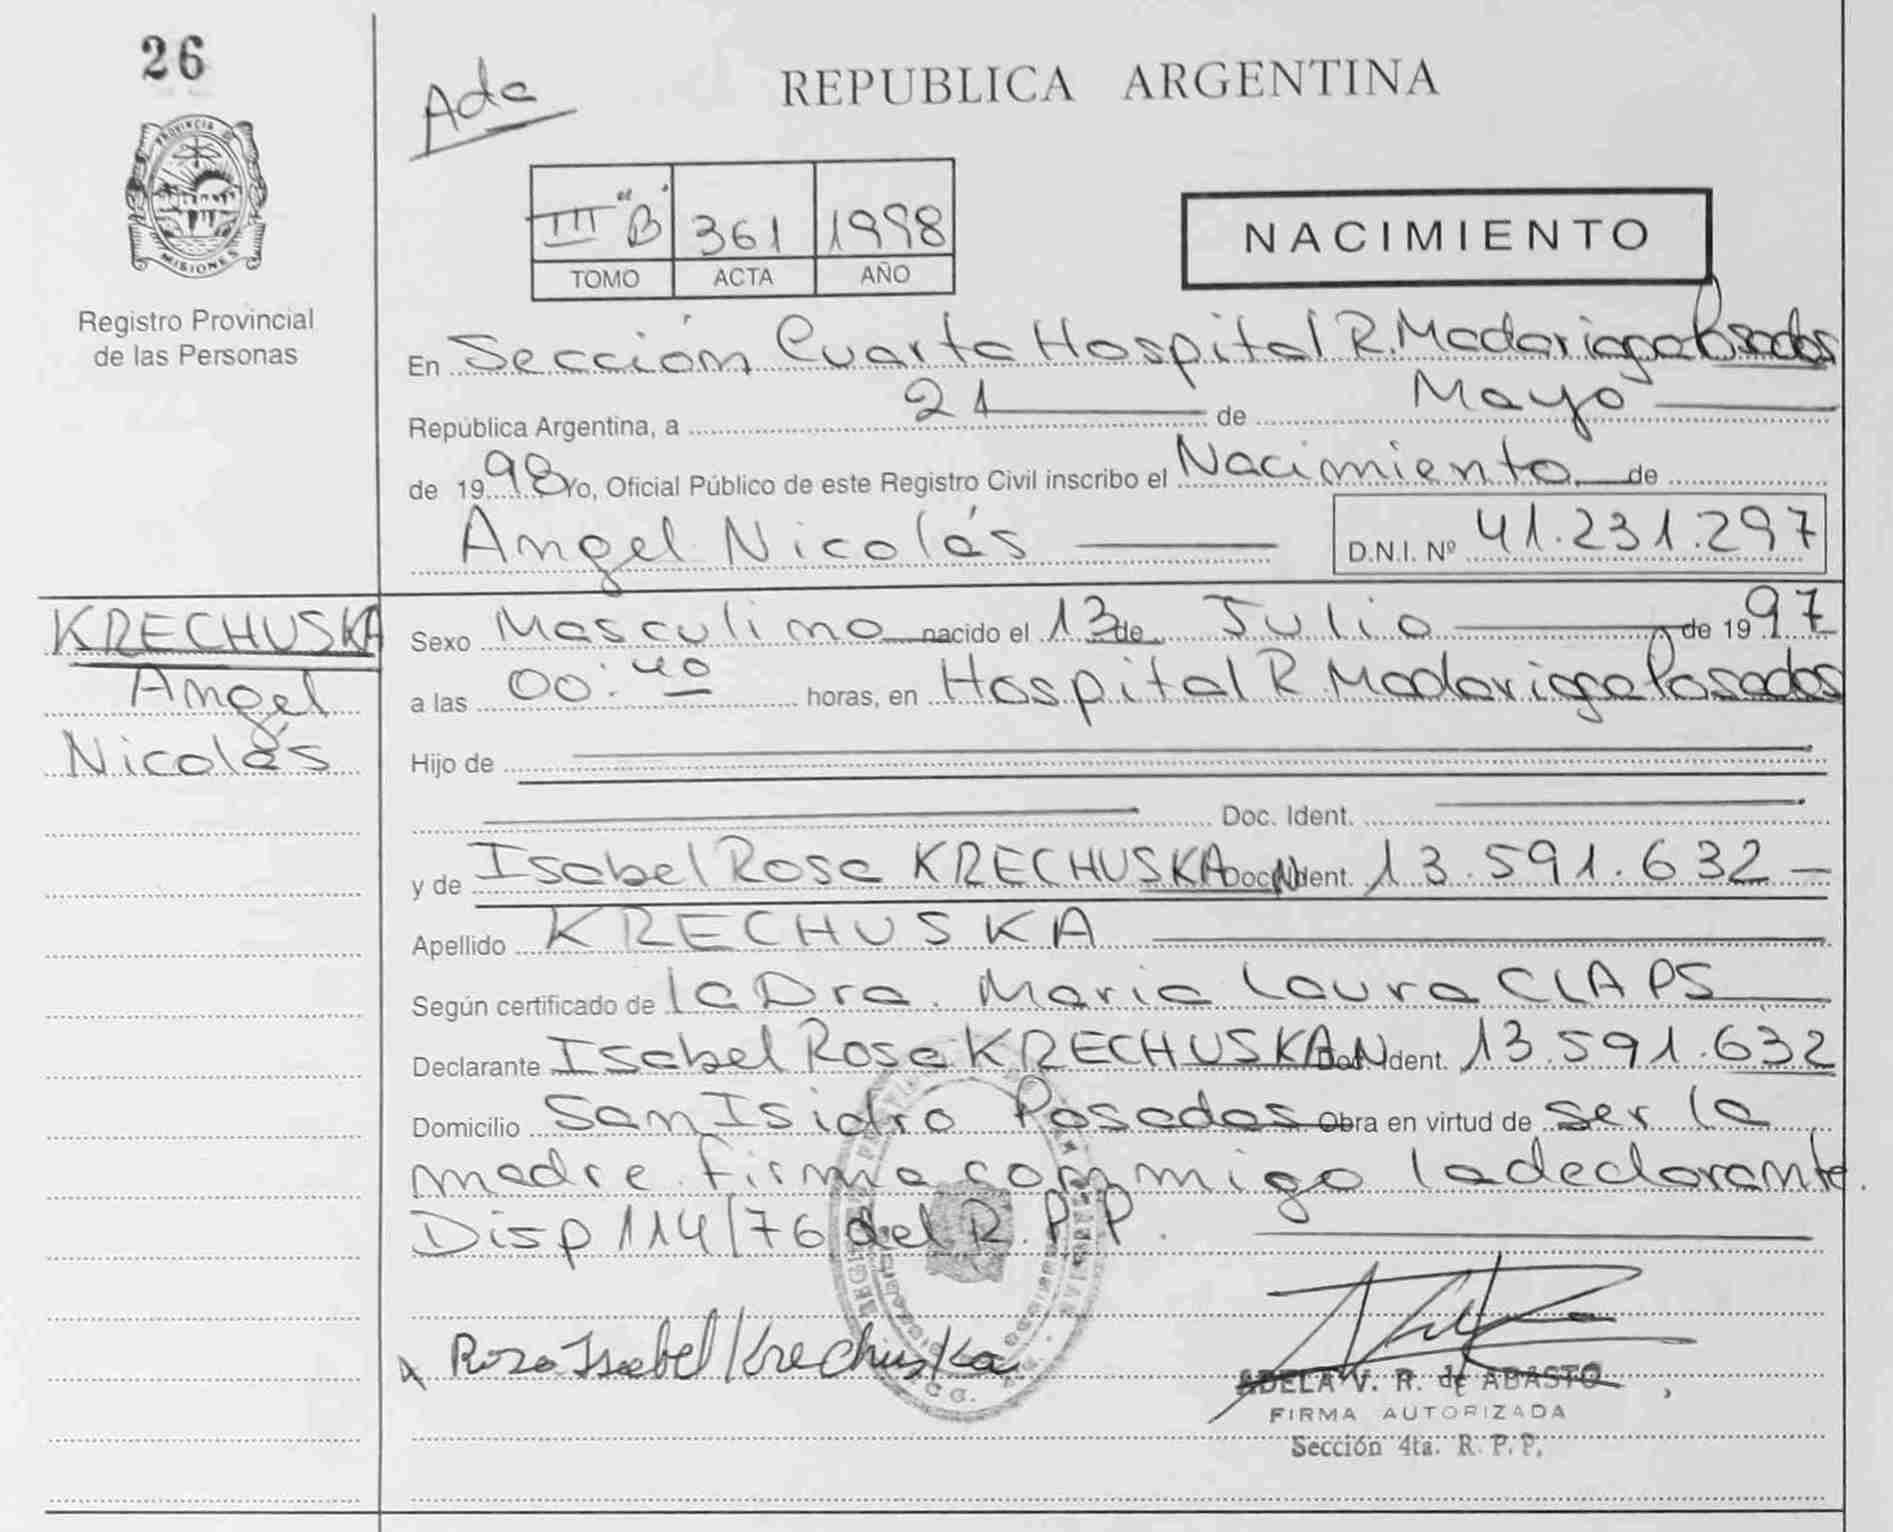 26
PROVINCIA DE
MISIONES
Registro Provincial
de las Personas
Ada
REPUBLICA ARGENTINA
III "B" 361 1998
TOMO ACTA AÑO
NACIMIENTO
En Sección Cuarta Hospital R. Madariaga Posadas
República Argentina, a 21 de Mayo
de 1998 Yo, Oficial Público de este Registro Civil inscribo el Nacimiento de
Angel Nicolás D.N.I. Nº 41.231.297
KRECHUSKA
Angel
Nicolás
Sexo Masculino nacido el 13 de Julio de 1997
a las 00:40 horas, en Hospital R. Madariaga Posadas
Hijo de
Doc. Ident.
y de Isabel Rosa KRECHUSKA Doc. Ident. 13.591.632
Apellido KRECHUSKA
Según certificado de la Dra. Maria Laura CLAPS
Declarante Isabel Rosa KRECHUSKA Doc. Ident. 13.591.632
Domicilio San Isidro Posadas Obra en virtud de ser la
madre. firma conmigo la declarante.
Disp 114/76 del R.P.P.
Rosa Isabel Krechuska
ADELA V. R. de ABASTO
FIRMA AUTORIZADA
Sección 4ta. R. P. P.